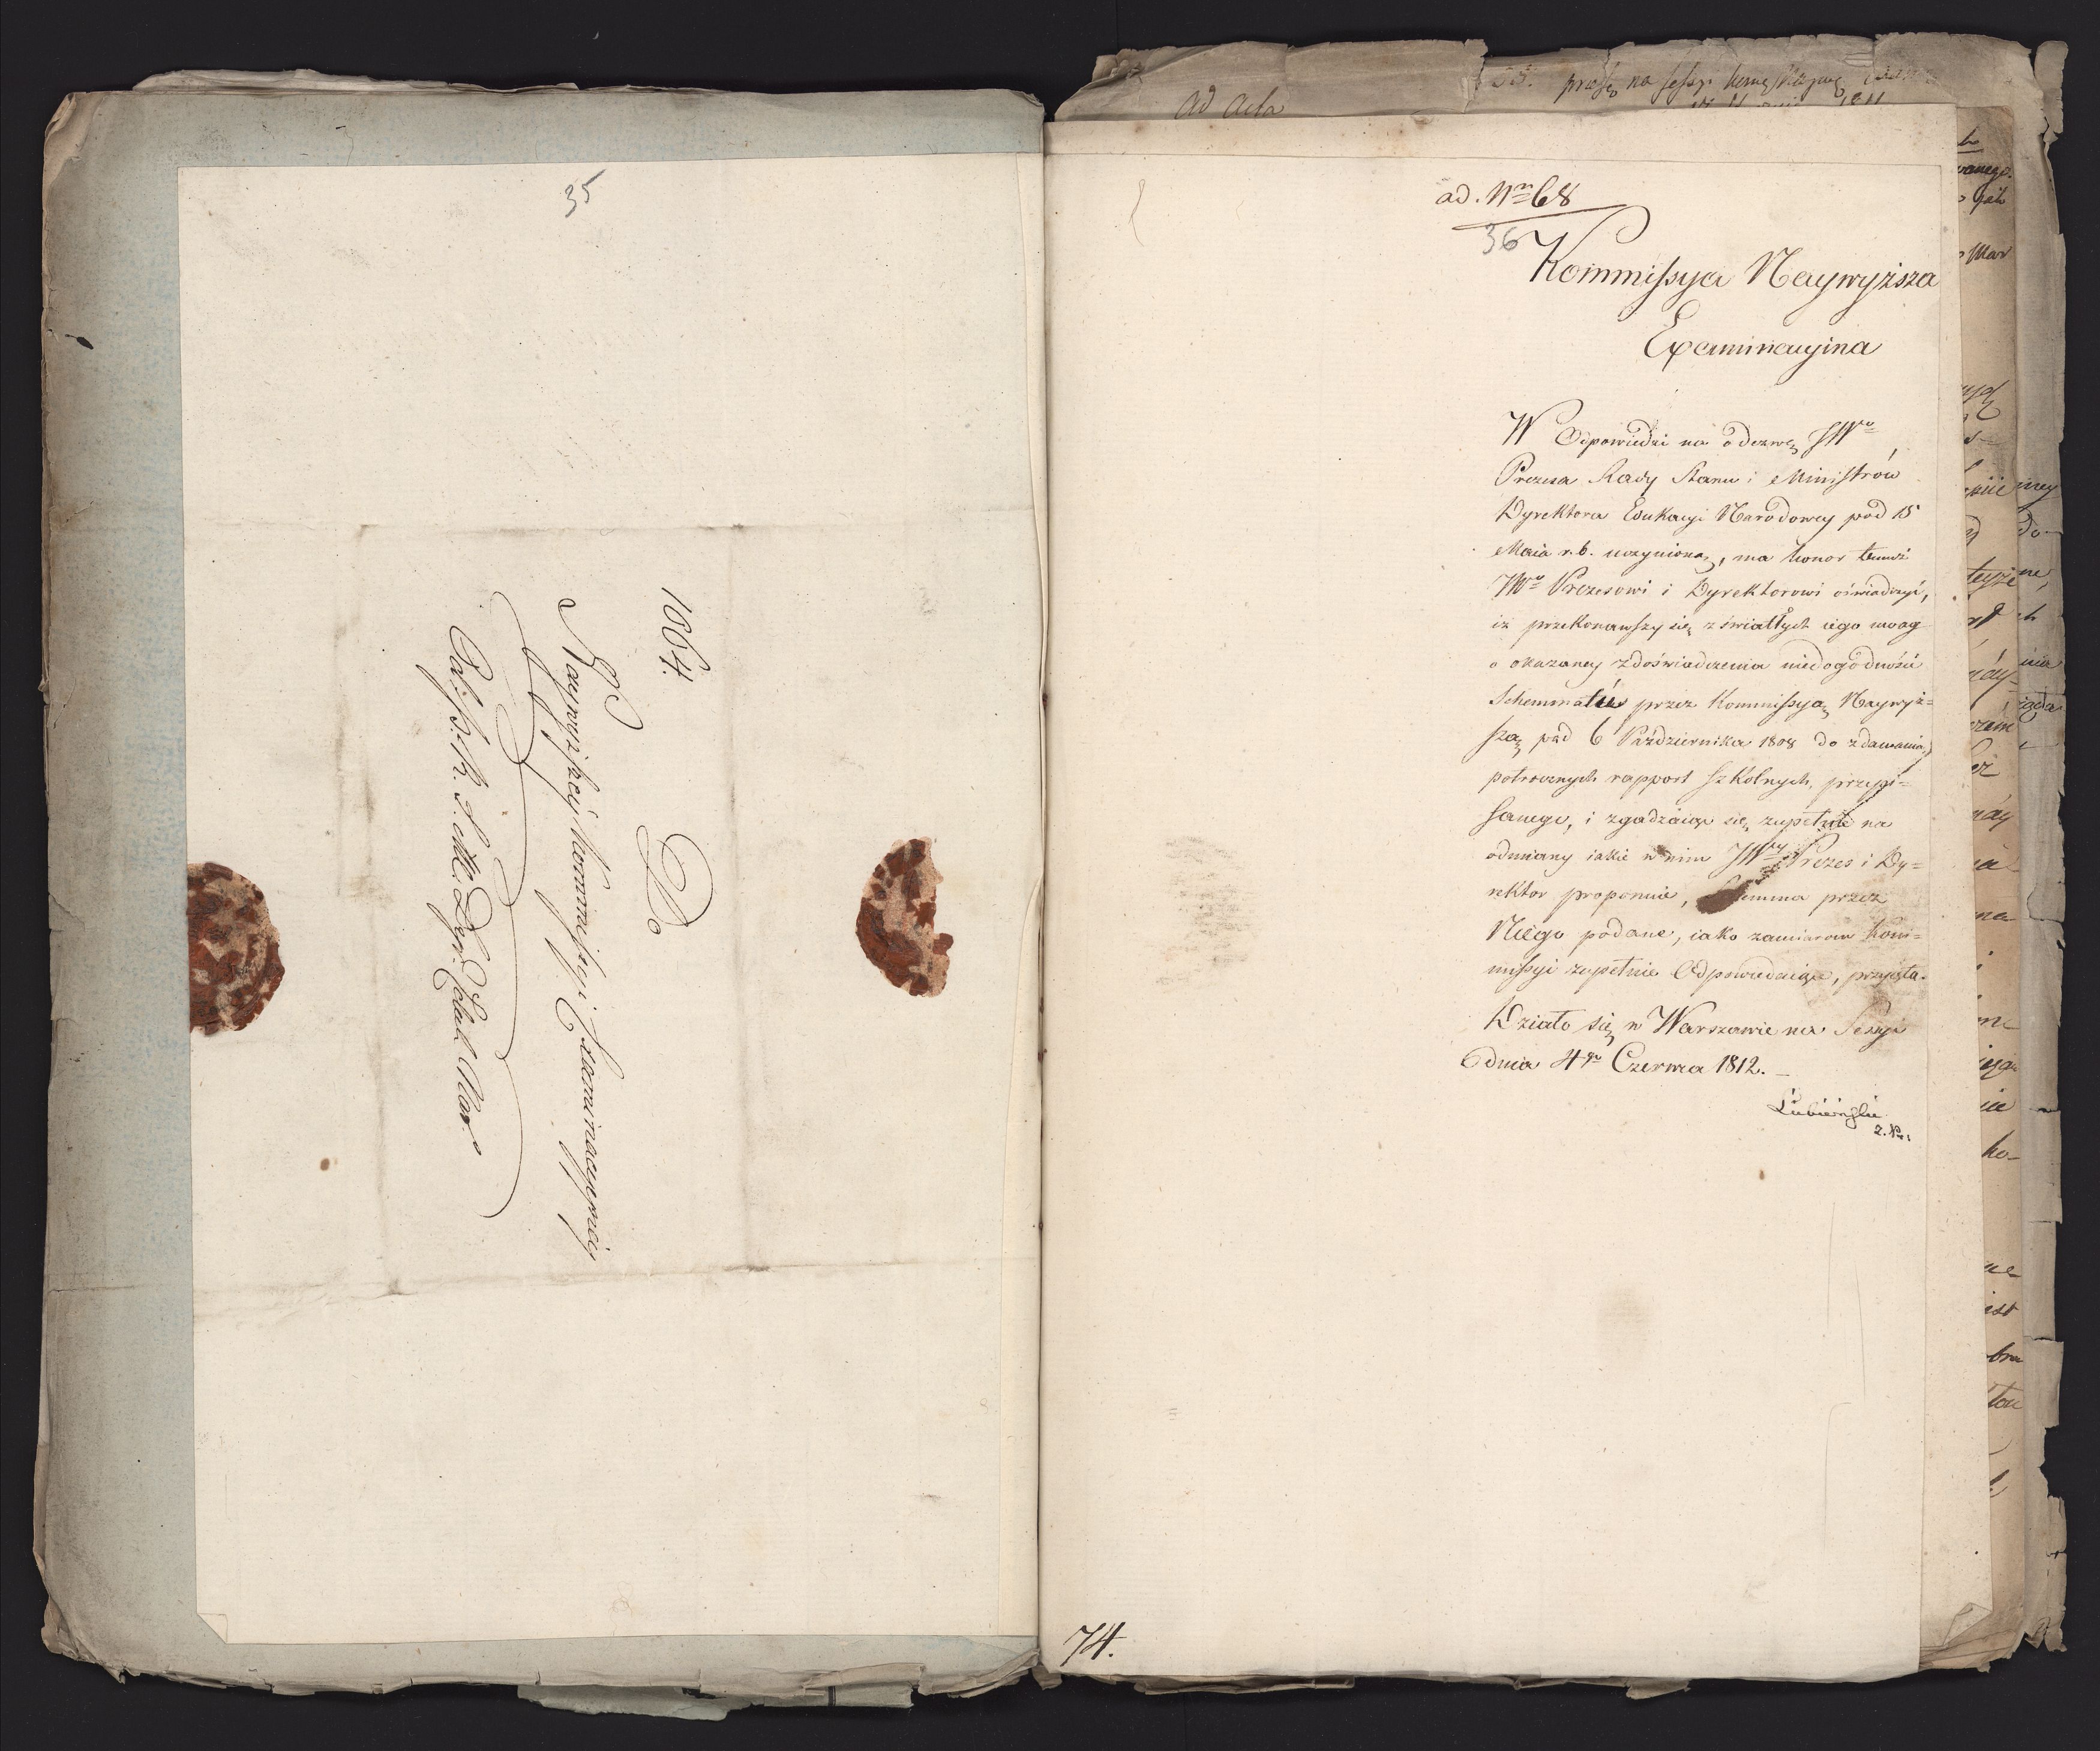 35
1064.
Do
Naywyższéy Kommissyi Examinacyinéy
ad acta
prosę na sessyi
ad. Nrm 68
36
Kommissya Naywyższa
Examinacyina
W Odpowiedzi na odezwę JWo
Prezesa Rady Stanu i Ministrów
Dyrektora Edukacyi Narodowey pod 15
Maia r. b. uczynioną, ma honor temuż
JWo Prezesowi i Dyrektorowi oświadczyć,
iż przekonawszy się z światłych iego uwag
o okazaney z doświadczenia niedogodności
Schemmatu przez Kommissyą Naywyż=
szą pod 6 Października 1808 do zdawania
potrocznych rapport szkolnych, przepi=
sanego, i zgadzaiąc się zupełnie na
odmiany iakie w nim JWny Prezes i Dy=
rektor proponuie, przez
Niego podane, iako zamiarom Kom=
missyi zupełnie Odpowiedaiące, przyięła.
Działo się w Warszawie na Sessyi
dnia 4go Czerwca 1812. –
Łubieński
74.